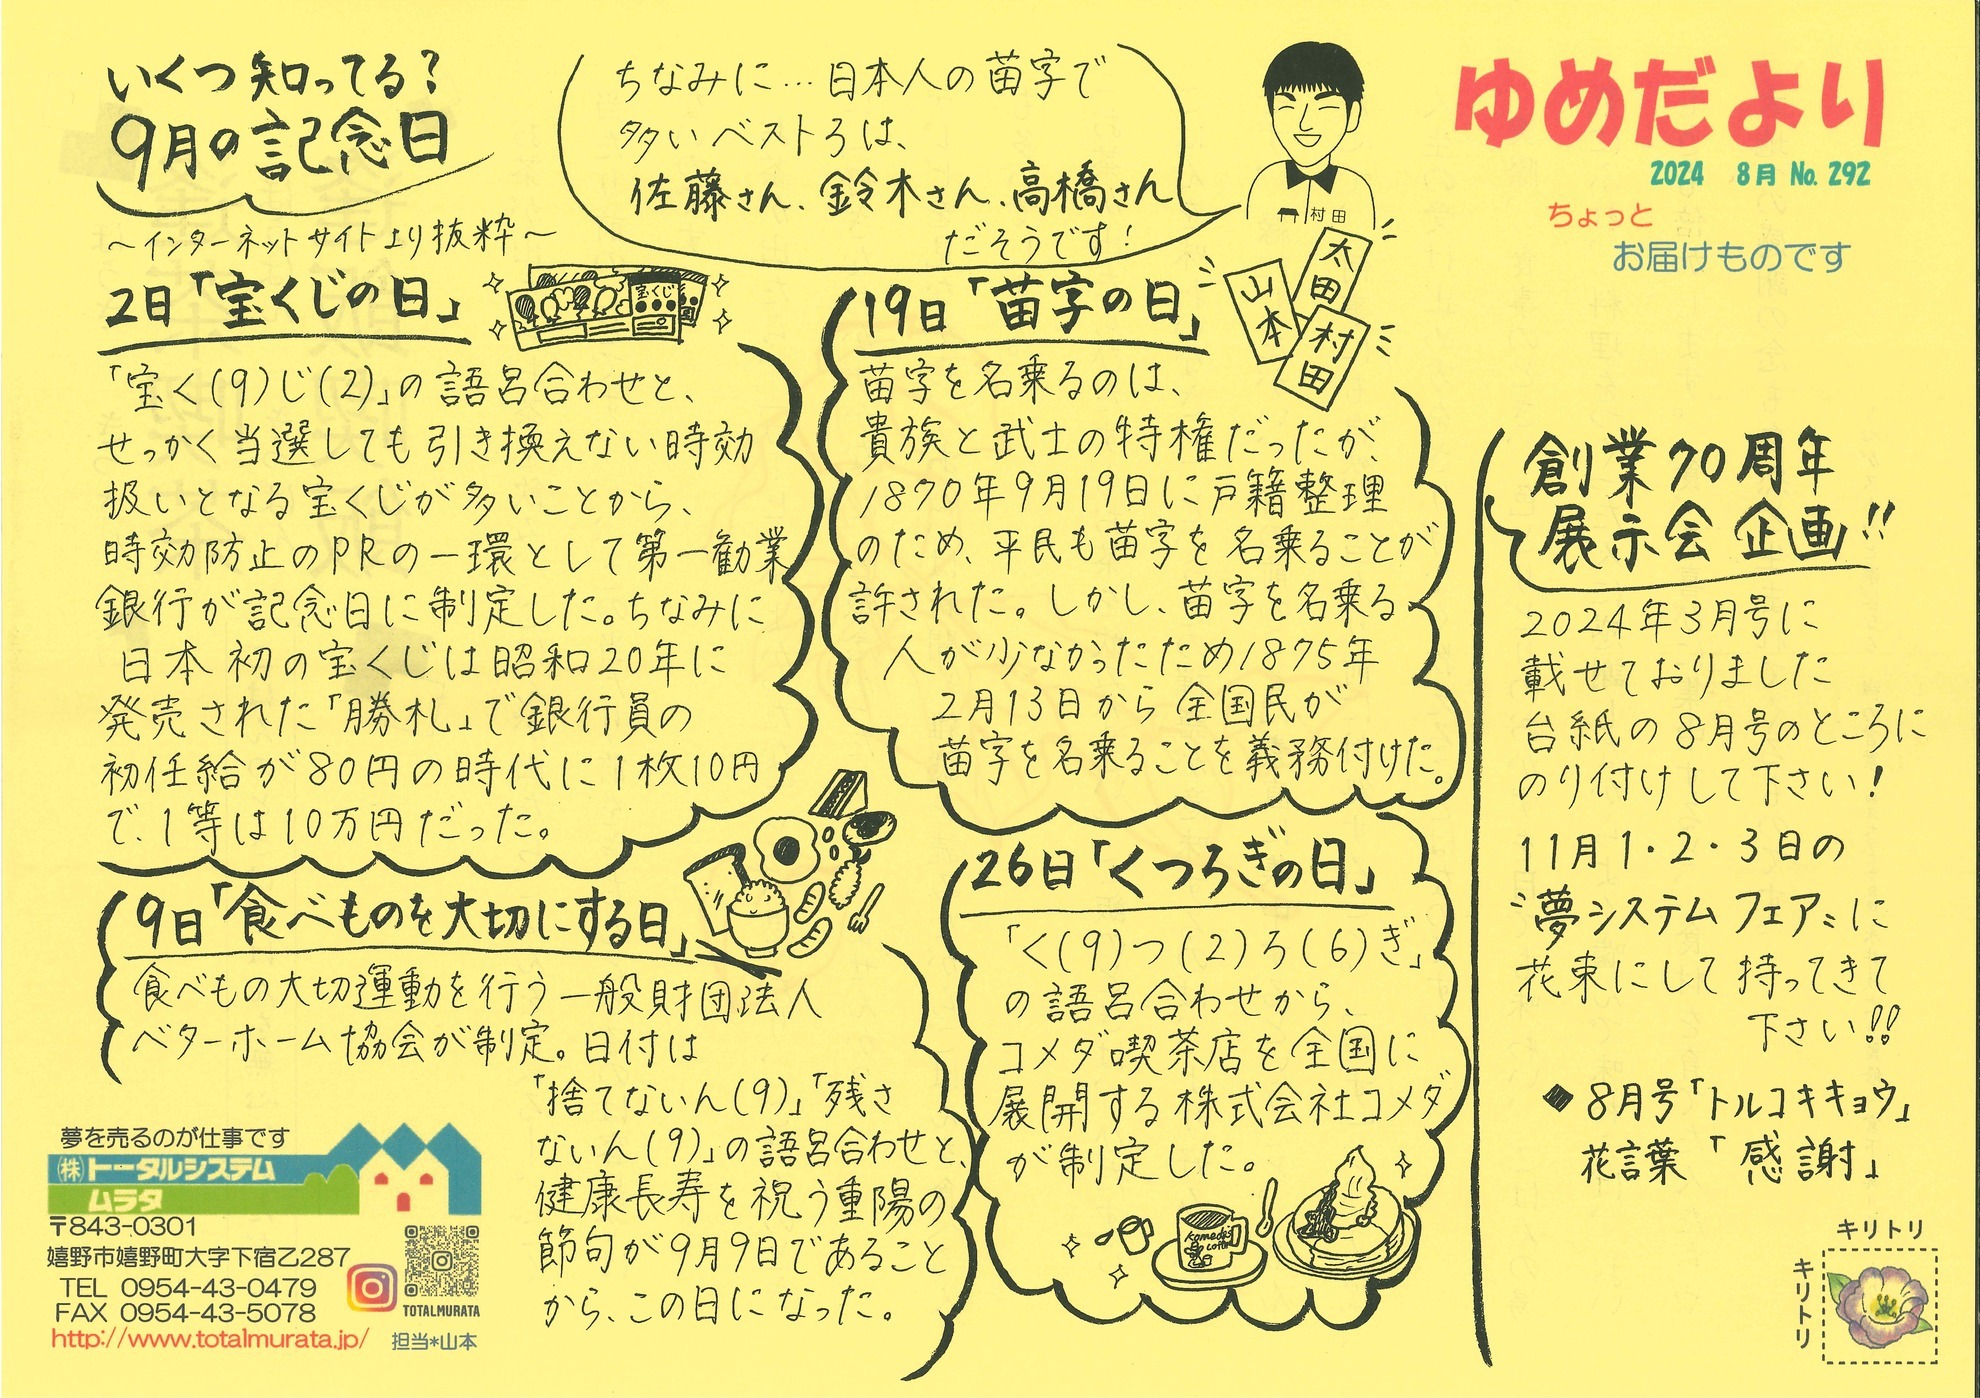 いくつ知ってる?
9月の記念日
～インターネットサイトより抜粋～
ちなみに…日本人の苗字で
多いベスト3は、
佐藤さん、鈴木さん、高橋さん
だそうです!
村田
ゆめだより
2024 8月 No. 292
ちょっと
お届けものです
2日「宝くじの日」
宝くじ
「宝く(9)じ(2)」の語呂合わせと、
せっかく当選しても引き換えない時効
扱いとなる宝くじが多いことから、
時効防止のPRの一環として第一勧業
銀行が記念日に制定した。ちなみに
日本初の宝くじは昭和20年に
発売された「勝札」で銀行員の
初任給が80円の時代に1枚10円
で、1等は10万円だった。
9日「食べものを大切にする日」
食べもの大切運動を行う一般財団法人
ベターホーム協会が制定。日付は
「捨てないん(9)」「残さ
ないん(9)」の語呂合わせと、
健康長寿を祝う重陽の
節句が9月9日であること
から、この日になった。
19日「苗字の日」
太田
山本
村田
苗字を名乗るのは、
貴族と武士の特権だったが、
1870年9月19日に戸籍整理
のため、平民も苗字を名乗ることが
許された。しかし、苗字を名乗る
人が少なかったため1875年
2月13日から全国民が
苗字を名乗ることを義務付けた。
26日「くつろぎの日」
「く(9)つ(2)ろ(6)ぎ」
の語呂合わせから、
コメダ喫茶店を全国に
展開する株式会社コメダ
が制定した。
komeda's
coffee
創業70周年
展示会企画!!
2024年3月号に
載せておりました
台紙の8月号のところに
のり付けして下さい!
11月1・2・3日の
〝夢システムフェア〟に
花束にして持ってきて
下さい!!
◆8月号「トルコキキョウ」
花言葉「感謝」
キリトリ
キリトリ
夢を売るのが仕事です
㈱トータルシステム
ムラタ
〒843-0301
嬉野市嬉野町大字下宿乙287
TEL 0954-43-0479
FAX 0954-43-5078
http://www.totalmurata.jp/
TOTALMURATA
担当*山本